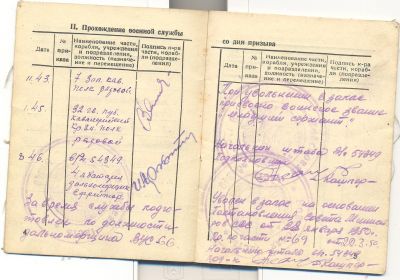 II. Прохождение военной службы
Дата
№ приказа
Наименование части, корабля, учреждения и подразделения, должность (назначение и перемещение)
Подпись к-ра части, корабля (подразделения)
11.43.
7 Зап. кав.
полк рядовой
1.45.
32 гв.
кавалерийский
полк
рядовой
3.46.
в/ч 54849
За время службы подго-
товлен по должности
дальномерщика ВУС 66.
со дня призыва
Дата
№ приказа
Наименование части, корабля, учреждения и подразделения, должность (назначение и перемещение)
Подпись к-ра части, корабля (подразделения)
При увольнении в запас
присвоено воинское звание
младший сержант
Начальник штаба в/ч 54849
Подполковник
Уволен в запас на основании
Постановления Совета Минист-
ров СССР от января 1950г.
части №69 от 22.3.50
Начальник штаба 54849